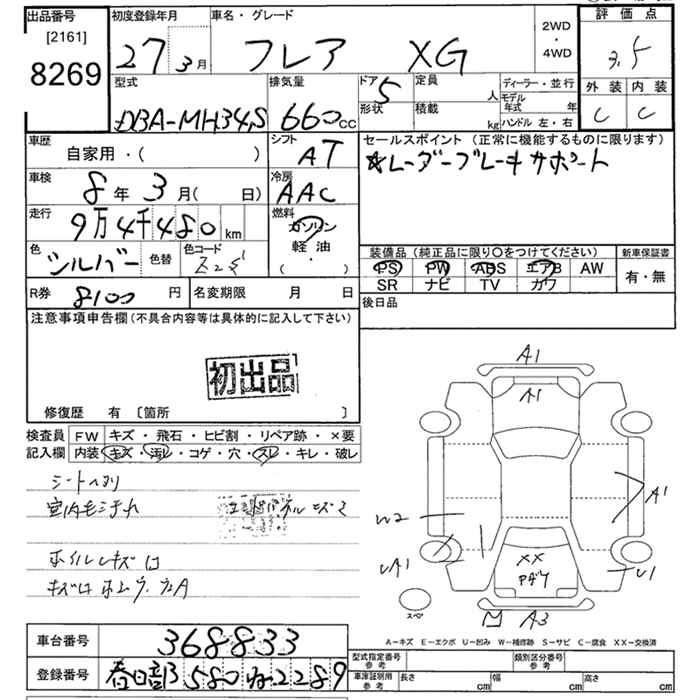 出品番号
[2161]
8269
初度登録年月
27 3月
車名・グレード
フレア XG
2WD
・
4WD
評価点
3.5
外装 内装
C C
型式
DBA-MH34S
排気量
660cc
ドア 5
形状
定員 人
積載 kg
ディーラー・並行
モデル年式 年
ハンドル 左・右
車歴
自家用・( )
シフト
AT
セールスポイント (正常に機能するものに限ります)
☆レーダーブレーキサポート
車検
8年 3月( 日)
冷房
AAC
走行
9万4千480km
燃料
ガソリン
軽油
・
( )
色
シルバー
色替
色コード
Z2S
装備品 (純正品に限り〇をつけてください)
PS PW ABS エアB AW
SR ナビ TV カワ
新車保証書
有・無
R券 8100円
名変期限 月 日
後日品
注意事項申告欄 (不具合内容等は具体的に記入して下さい)
初出品
修復歴 有 〔箇所 〕
検査員
記入欄
FW キズ・飛石・ヒビ割・リペア跡・×要
内装 キズ・汚レ・コゲ・穴・スレ・キレ・破レ
シートヘタリ
室内モニタレ
ホイルキズ
A1
A1
A1
W2
UA1
U1
XX
A3
スペア
A-キズ E-エクボ U-凹み W-補修跡 S-サビ C-腐食 XX-交換済
車台番号 368833
登録番号 春日部 580 ね 2289
型式指定番号
参考
類別区分番号
参考
車庫証明用
参考
長さ cm
幅 cm
高さ cm